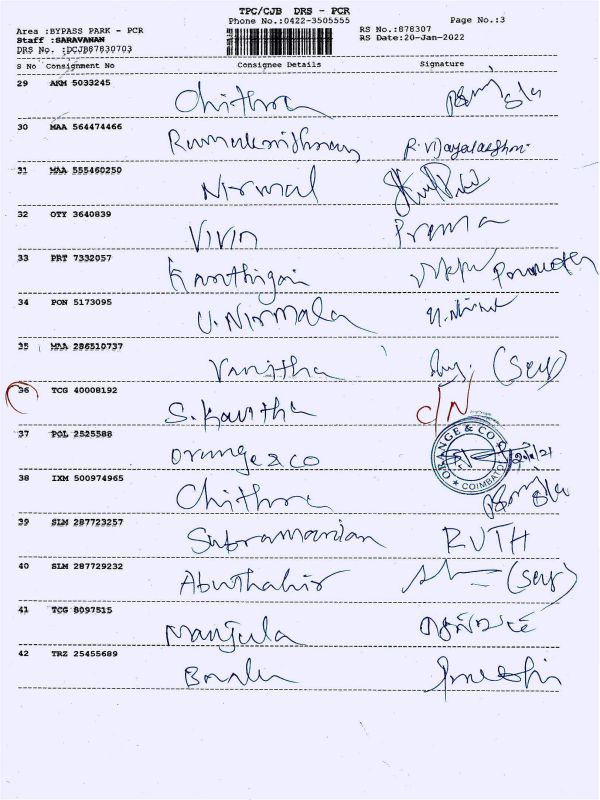 TPC/CJB DRS - PCR
Phone No.:0422-3505555
Page No.:3
Area :BYPASS PARK - PCR
RS No.:878307
Staff :SARAVANAN
RS Date:20-Jan-2022
DRS No. :DCJB87830703
S No Consignment No Consignee Details Signature
29 AKM 5033245 Chithra
30 MAA 564474466 R. Vijayalakshmi
31 MAA 555460250 Nirmal
32 OTY 3640839 Vivin Prema
33 PRT 7332057 Karthigai
34 PON 5173095 U. Nirmala
35 MAA 286510737 Vanitha (Self)
36 TCG 40008192 S. Kavitha C/N
37 POL 2525588 Orange & Co
ORANGE & CO
COIMBATO
38 IXM 500974965 Chithra
39 SLM 287723257 Subramanian RUTH
40 SLM 287729232 Abuthahir (Self)
41 TCG 8097515 Manjula
42 TRZ 25455689